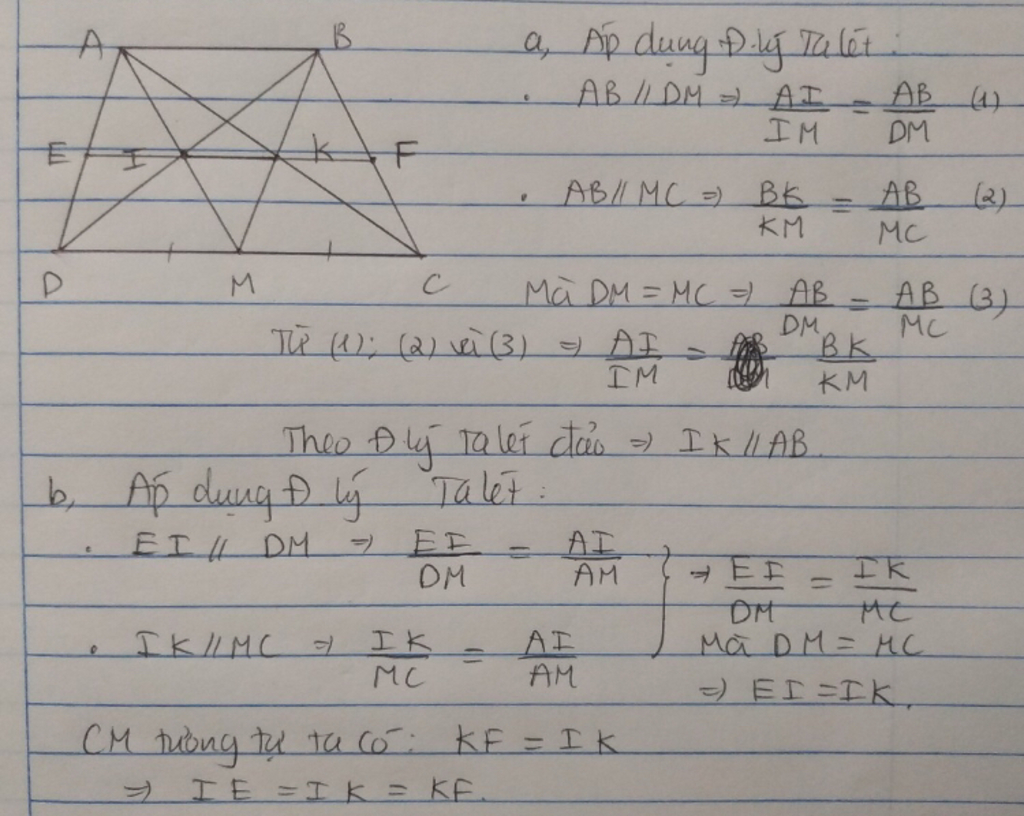 A B
E I K F
D M C
a, Áp dụng Đ.lý Ta lét:
. AB // DM ⇒ AI/IM = AB/DM (1)
. AB // MC ⇒ BK/KM = AB/MC (2)
Mà DM = MC ⇒ AB/DM = AB/MC (3)
Từ (1); (2) và (3) ⇒ AI/IM = BK/KM
Theo Đ lý Ta lét đảo ⇒ IK // AB.
b, Áp dụng Đ lý Ta lét:
. EI // DM ⇒ EI/DM = AI/AM
. IK // MC ⇒ IK/MC = AI/AM
} ⇒ EI/DM = IK/MC
Mà DM = MC
⇒ EI = IK.
CM tương tự ta có: KF = IK
⇒ IE = IK = KF.